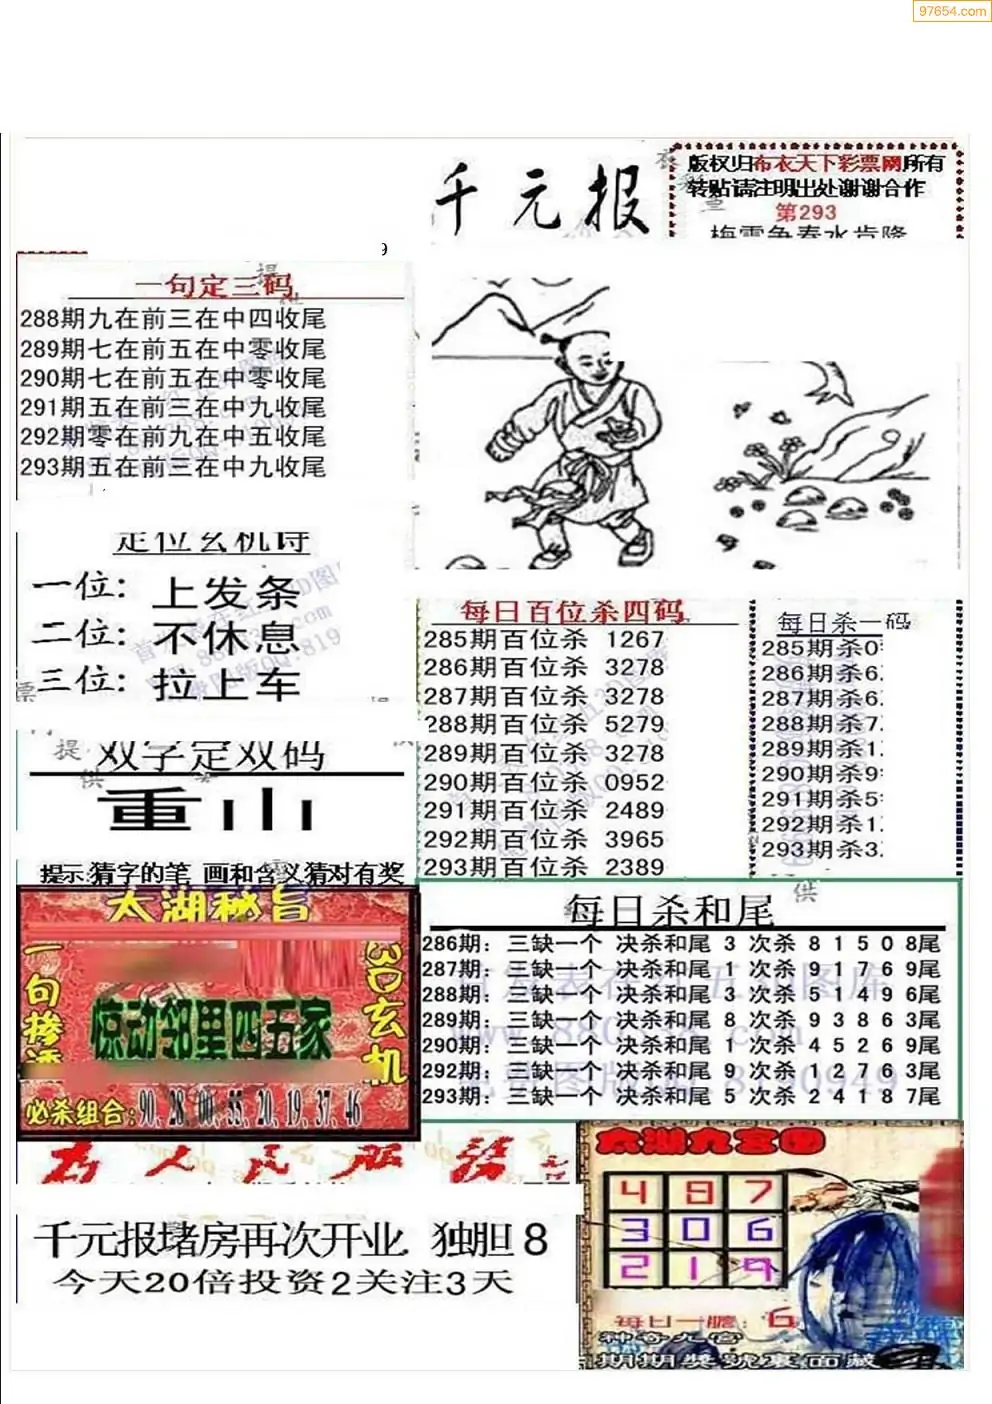 97654.com
千元报
版权归布衣天下彩票网所有
转贴请注明出处谢谢合作
第293
梅雪争春水肯降
9
一句定三码
288期九在前三在中四收尾
289期七在前五在中零收尾
290期七在前五在中零收尾
291期五在前三在中九收尾
292期零在前九在中五收尾
293期五在前三在中九收尾
定位玄机诗
一位：上发条
二位：不休息
三位：拉上车
双字定双码
重山
提示:猜字的笔 画和含义猜对有奖
每日百位杀四码
285期百位杀 1267
286期百位杀 3278
287期百位杀 3278
288期百位杀 5279
289期百位杀 3278
290期百位杀 0952
291期百位杀 2489
292期百位杀 3965
293期百位杀 2389
每日杀一码
285期杀0
286期杀6
287期杀6
288期杀7
289期杀1
290期杀9
291期杀5
292期杀1
293期杀3
太湖秘旨
惊动邻里四五家
3D玄机
必杀组合:90.28.00.55.20.19.37.46
每日杀和尾
286期：三缺一个 决杀和尾 3 次杀 8 1 5 0 8尾
287期：三缺一个 决杀和尾 1 次杀 9 1 7 6 9尾
288期：三缺一个 决杀和尾 6 次杀 5 1 4 9 6尾
289期：三缺一个 决杀和尾 8 次杀 9 3 8 6 3尾
290期：三缺一个 决杀和尾 1 次杀 4 5 2 6 9尾
292期：三缺一个 决杀和尾 9 次杀 1 2 7 6 3尾
293期：三缺一个 决杀和尾 5 次杀 2 4 1 8 7尾
为人民服务
千元报堵房再次开业 独胆 8
今天20倍投资2关注3天
太湖九宫图
4 8 7
3 0 6
2 1 9
每日一胆：6
神奇九宫
期期奖號裏面藏